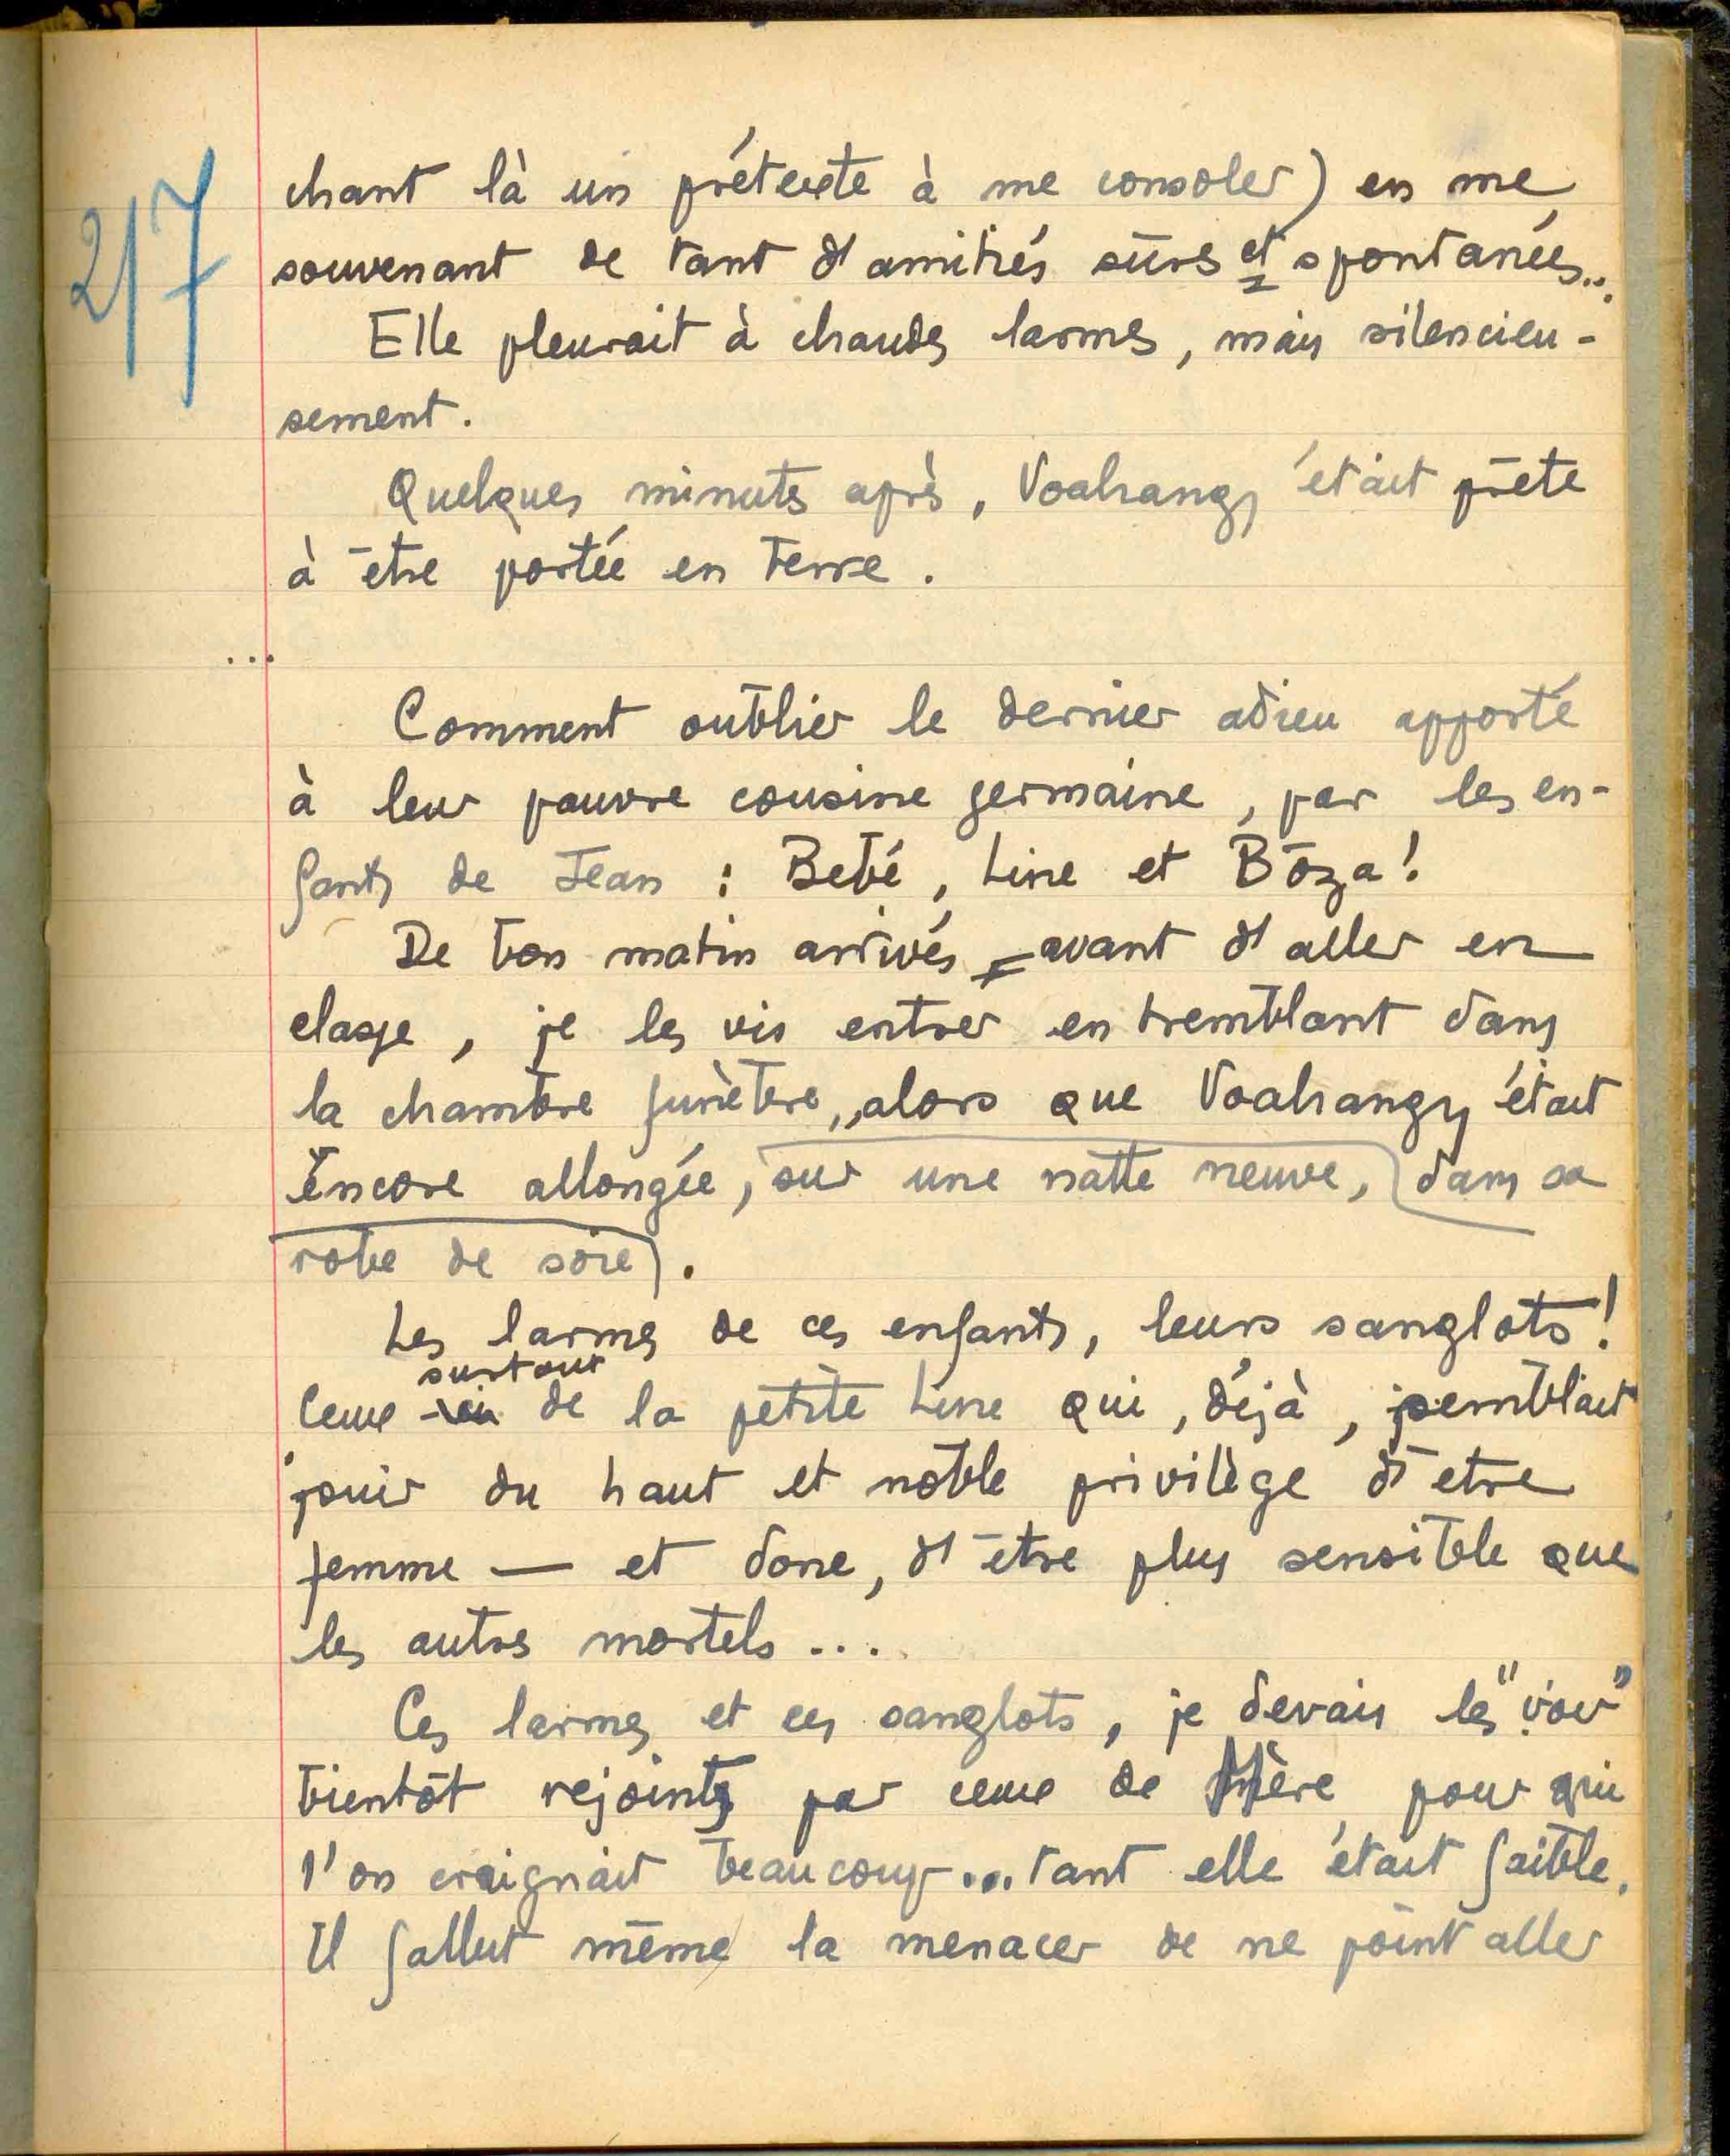 217
chant là un prétexte à me consoler) en me
souvenant de tant d'amitiés sûres et spontanées...
Elle pleurait à chaudes larmes, mais silencieu-
sement.
Quelques minutes après, Voahangy était prête
à être portée en terre.
...
Comment oublier le dernier adieu apporté
à leur pauvre cousine germaine, par les en-
fants de Jean : Bebé, Line et Bôza !
De bon matin arrivés avant d'aller en
classe, je les vis entrer en tremblant dans
la chambre funèbre, alors que Voahangy était
encore allongée, sur une natte neuve, dans sa
robe de soie).
Les larmes de ces enfants, leurs sanglots !
surtout
Ceux de la petite Line qui, déjà, semblait
jouir du haut et noble privilège d'être
femme — et donc, d'être plus sensible que
les autres mortels ...
Ces larmes et ces sanglots, je devais les "voir"
bientôt rejoints par ceux de Mère pour qui
l'on craignait beaucoup... tant elle était faible.
Il fallut même la menacer de ne point aller